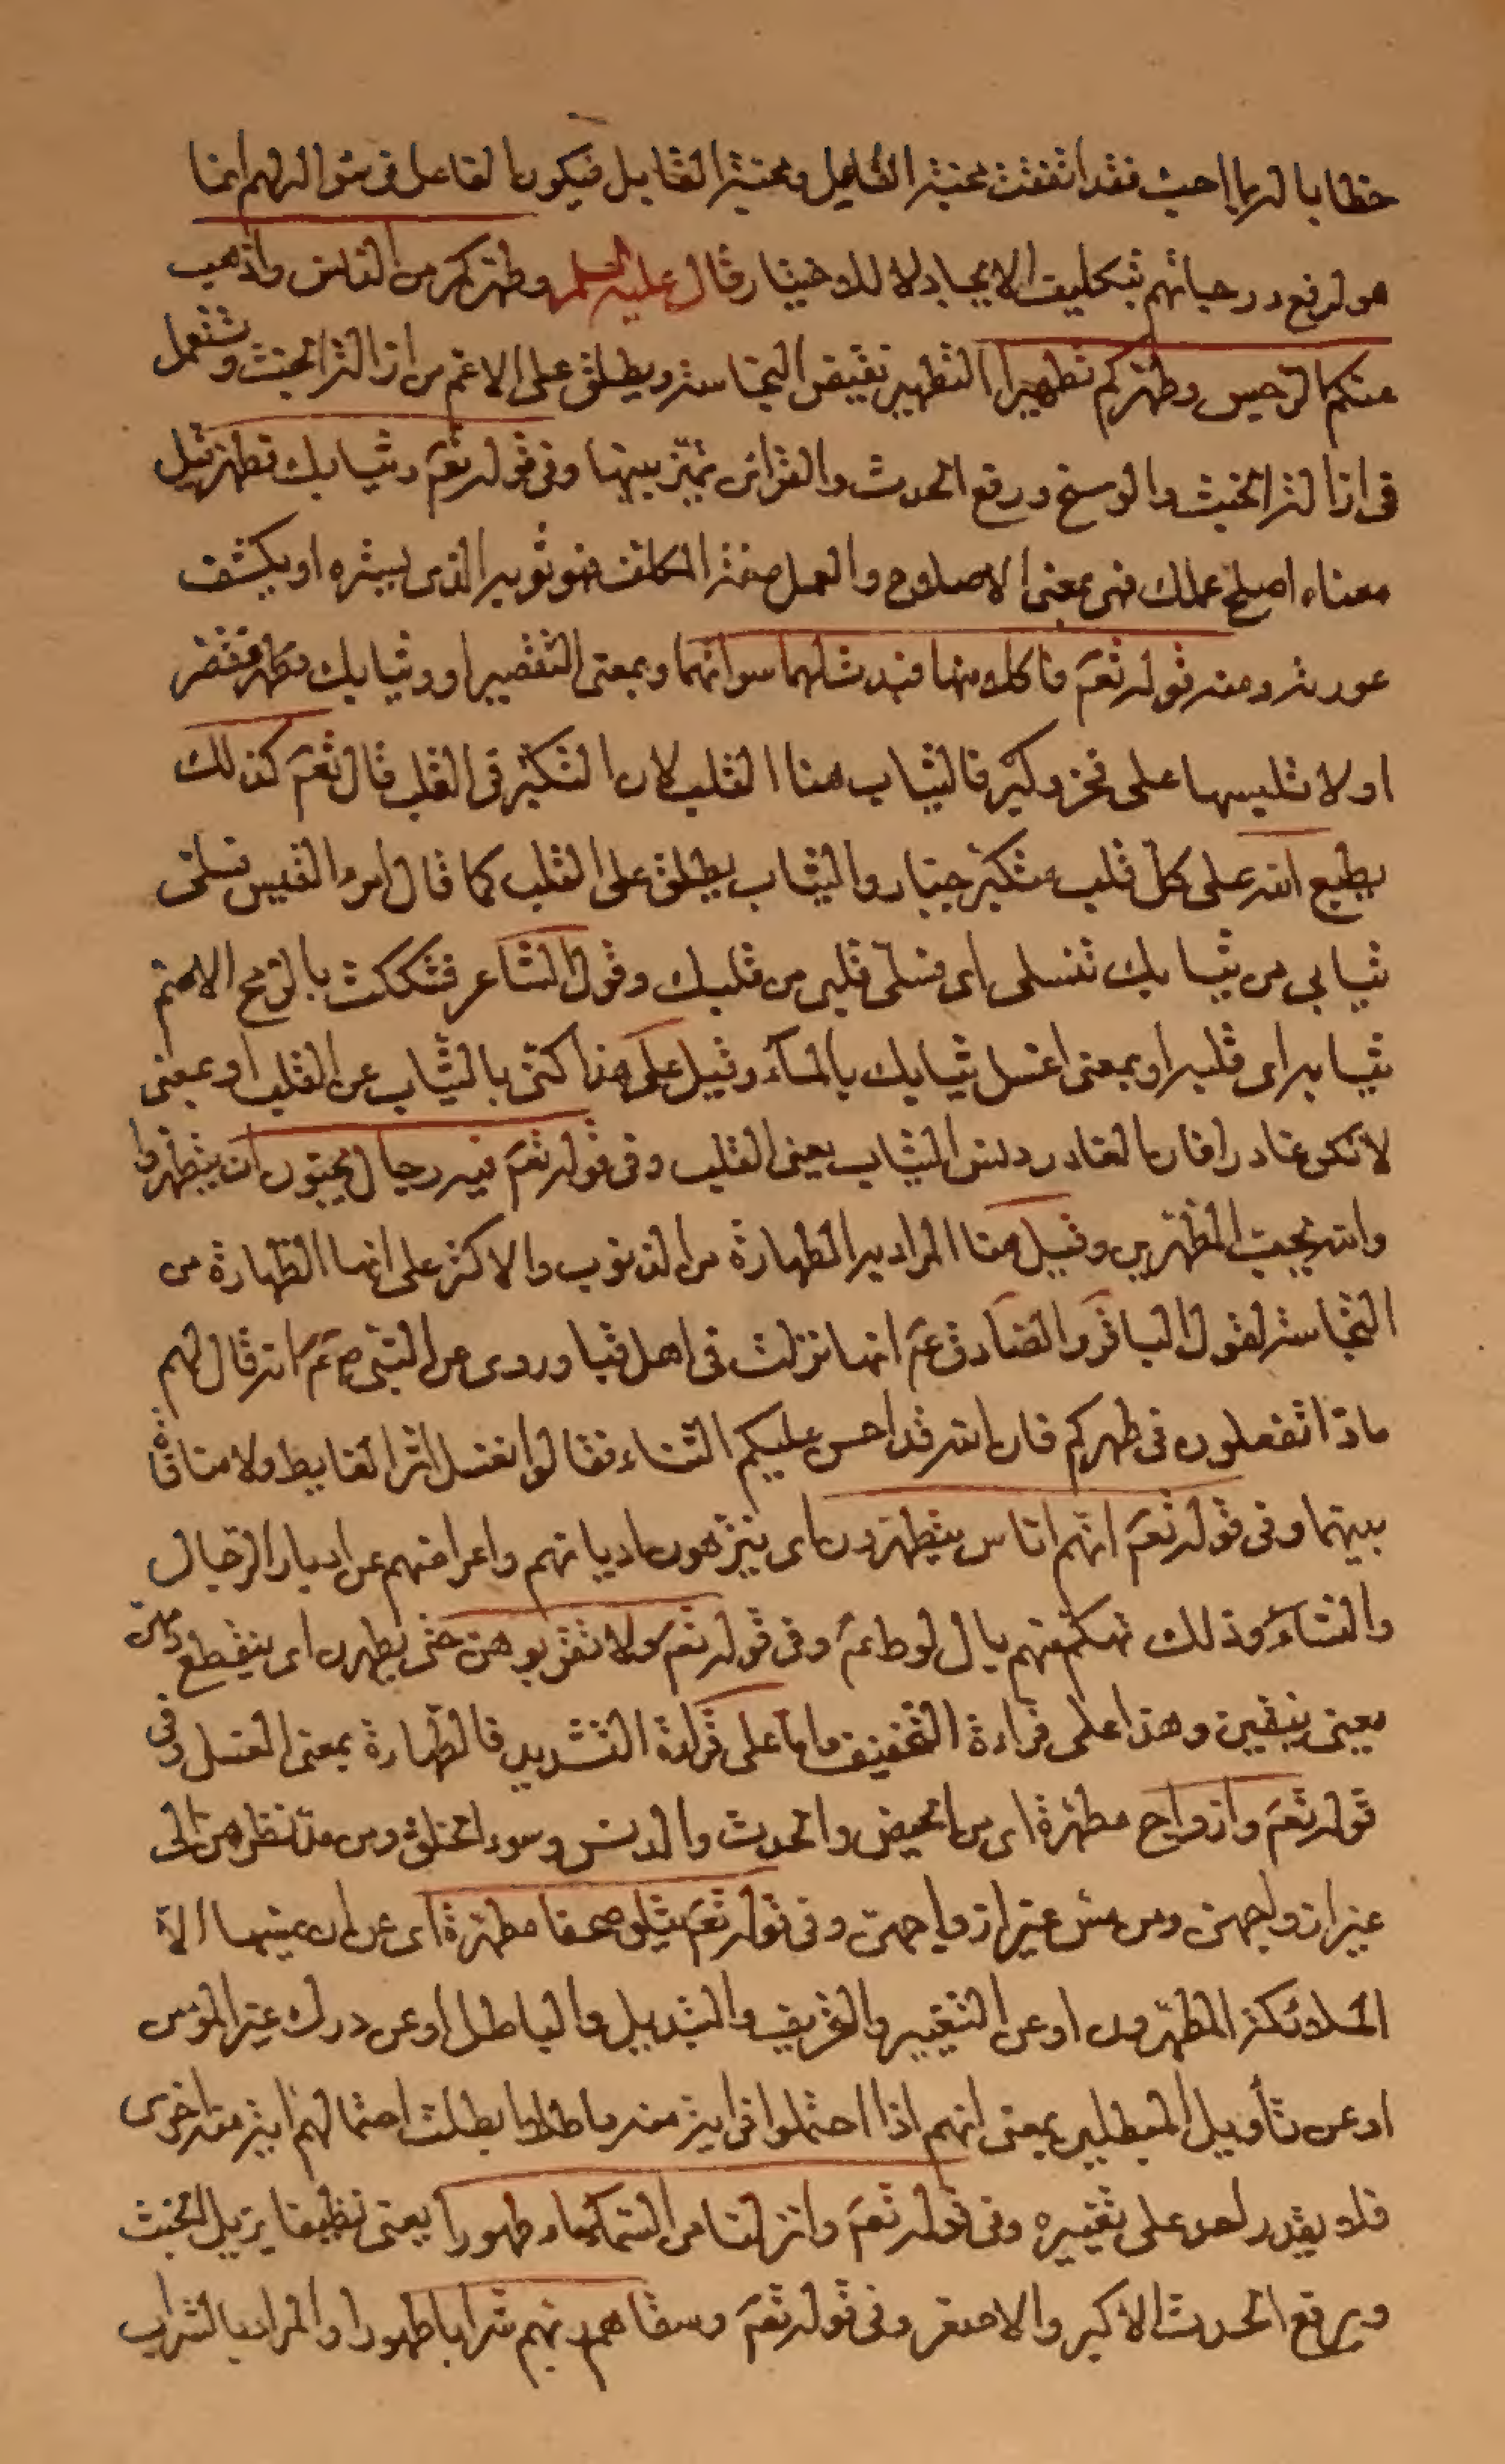 خطابا لربما احب فقد اتفقت محبة الفاعل ومحبة القابل فيكون الفاعل في سؤاله لهم انما
هو لرفع درجاتهم بتكليف الايجاد لا للاختيار قال عليه السلم وطهركم من الدنس واذهب
عنكم الرجس وطهركم تطهيرا التطهير نقيض النجاسة ويطلق على الاعم من ازالة الخبث وتستعمل
في ازالة الخبث والوسخ ورفع الحدث والقرائن تميز بينها وفي قوله تعم وثيابك فطهر قيل
معناه اصلح عملك فهي بمعنى الاصلاح والعمل صفة المكلف فهو ثوبه الذي يستره او يكشف
عورته ومنه قوله تعم فاكلا منها فبدت لهما سواتهما وبمعنى التقصير او وثيابك فطهر فقصر
او لا تلبسها على فخر وكبر فالثياب هنا القلب لان التكبر في القلب قال تعم كذلك
يطبع الله على كل قلب متكبر جبار والثياب يطلق على القلب كما قال امرء القيس فسلي
ثيابي من ثيابك تنسلي اي فسلي قلبي من قلبك وقول الشاعر فشككت بالرمح الاصم
ثيابه اي قلبه او بمعنى اغسل ثيابك بالماء وقيل على هذا كنى بالثياب عن القلب او بمعنى
لا تكن غادرا فان الغادر دنس الثياب يعنى القلب وفي قوله تعم فيه رجال يحبون ان يتطهروا
والله يحب المطهرين وقيل هنا المراد به الطهارة من الذنوب والاكثر على انها الطهارة من
النجاسة لقول الباقر والصادق عم انها نزلت في اهل قبا وروى عن النبي ص عم انه قال لهم
ماذا تفعلون في طهركم فان الله قد احسن عليكم الثناء فقالوا نغسل اثر الغايط ولا منافاة
بينهما وفي قوله تعم انهم اناس يتطهرون اي يتنزهون اديانهم واعراضهم عن ادبار الرجال
والنساء وذلك تهكم منهم بال لوط عم وفي قوله تعم ولا تقربوهن حتى يطهرن اي ينقطع دمهن
يعنى ينقين وهذا على قراءة التخفيف واما على قراءة التشديد فالطهارة بمعنى الغسل وفي
قوله تعم وازواج مطهرة اي من الحيض والحدث والدنس وسوء الخلق ومن مد نظرهن الى
غير ازواجهن ومن مس غير ازواجهن وفي قوله تعم يتلو صحفا مطهرة اي عن ان يمسها الا
الملائكة المطهرون او عن التغيير والتحريف والتبديل والباطل او عن درك غير المؤمن
او عن تأويل المبطلين بمعنى انهم اذا احتملوا في اية منه باطلا ابطلت احتمالهم اية منه اخرى
فلا يقدر احد على تغييره وفي قوله تعم وانزلنا من السماء ماء طهورا يعنى نظيفا يزيل الخبث
ويرفع الحدث الاكبر والاصغر وفي قوله تعم وسقاهم ربهم شرابا طهورا والمراد بالشراب